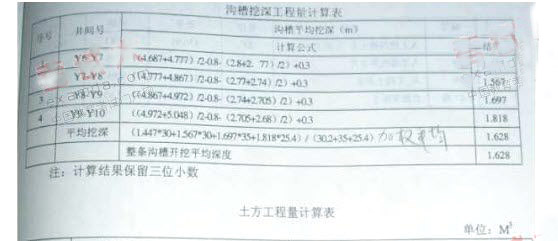 沟槽挖深工程量计算表
序号 井间号 沟槽平均挖深（m）
计算公式 结
Y6-Y7 ((4.687+4.777) /2-0.8-（2.8+2. 77）/2）+0.3
Y7-Y8 ((4.777+4.867) /2-0.8-（2.77+2.74）/2）+0.3 1.567
3 Y8-Y9 ((4.867+4.972) /2-0.8-（2.74+2.705）/2）+0.3 1.697
4 Y9-Y10 ((4.972+5.048) /2-0.8-（2.705+2.68）/2）+0.3 1.818
平均挖深 (1.447*30+1.567*30+1.697*35+1.818*25.4) / (30.2+35+25.4) 加权平均 1.628
整条沟槽开挖平均深度 1.628
注：计算结果保留三位小数
土方工程量计算表
单位：M³